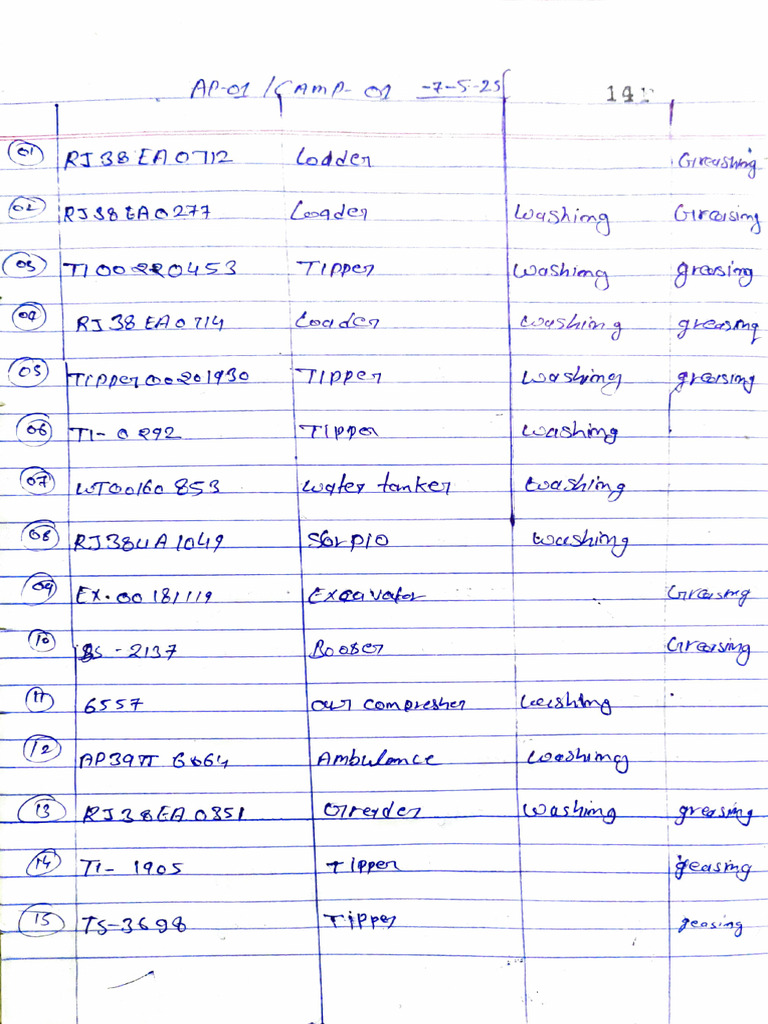 AP-01 / CAMP- 01 -7-5-25 141
01 RJ38EA0712 Lodder Greashing
02 RJ38EA0277 Loader Washing Greasing
03 TI00220453 Tipper Washing greasing
04 RJ38EA0714 Loader Washing greasing
05 Tipper00201930 Tipper Washing greasing
06 TI-0292 Tipper Washing
07 WT00160853 Water tanker Washing
08 RJ38UA1049 Washing
09 EX.00181119 Excavator Greasing
10 BS-2137 Booser Greasing
11 6557 compresher Washing
12 Ambulance Washing
13 RJ38EA0351 Greyder Washing greasing
14 TI-1905 Tipper geasing
15 TS-3698 Tipper geasing